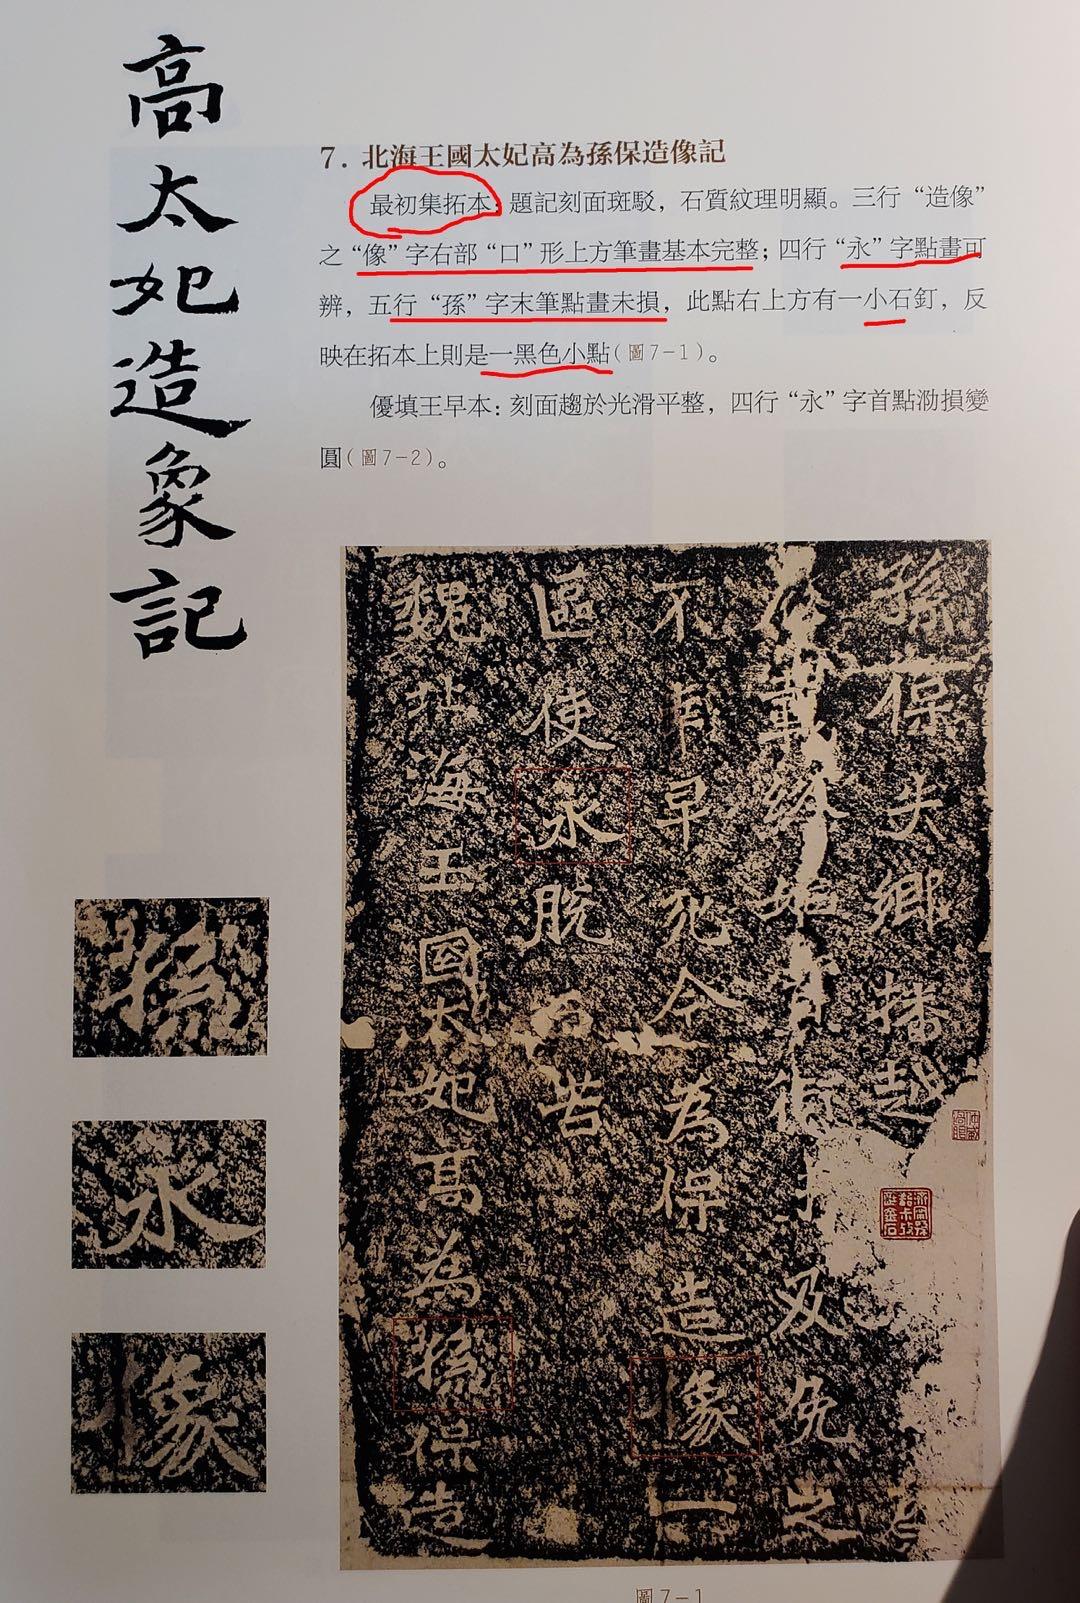 高太妃造象記
7. 北海王國太妃高為孫保造像記
最初集拓本：題記刻面斑駁，石質紋理明顯。三行“造像”
之“像”字右部“口”形上方筆畫基本完整；四行“永”字點畫可
辨，五行“孫”字末筆點畫未損，此點右上方有一小石釘，反
映在拓本上則是一黑色小點（圖7-1）。
優填王早本：刻面趨於光滑平整，四行“永”字首點泐損變
圓（圖7-2）。
孫保失鄉播越
載終始冥衛及免之
不育早死今為保造像一
區使永脫百苦
魏北海王國太妃高為孫保造
孫
永
像
圖7-1